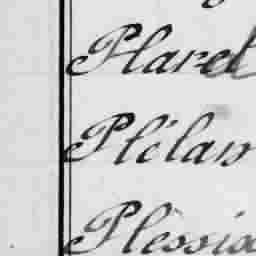 Plaret
Plélan
Plessix